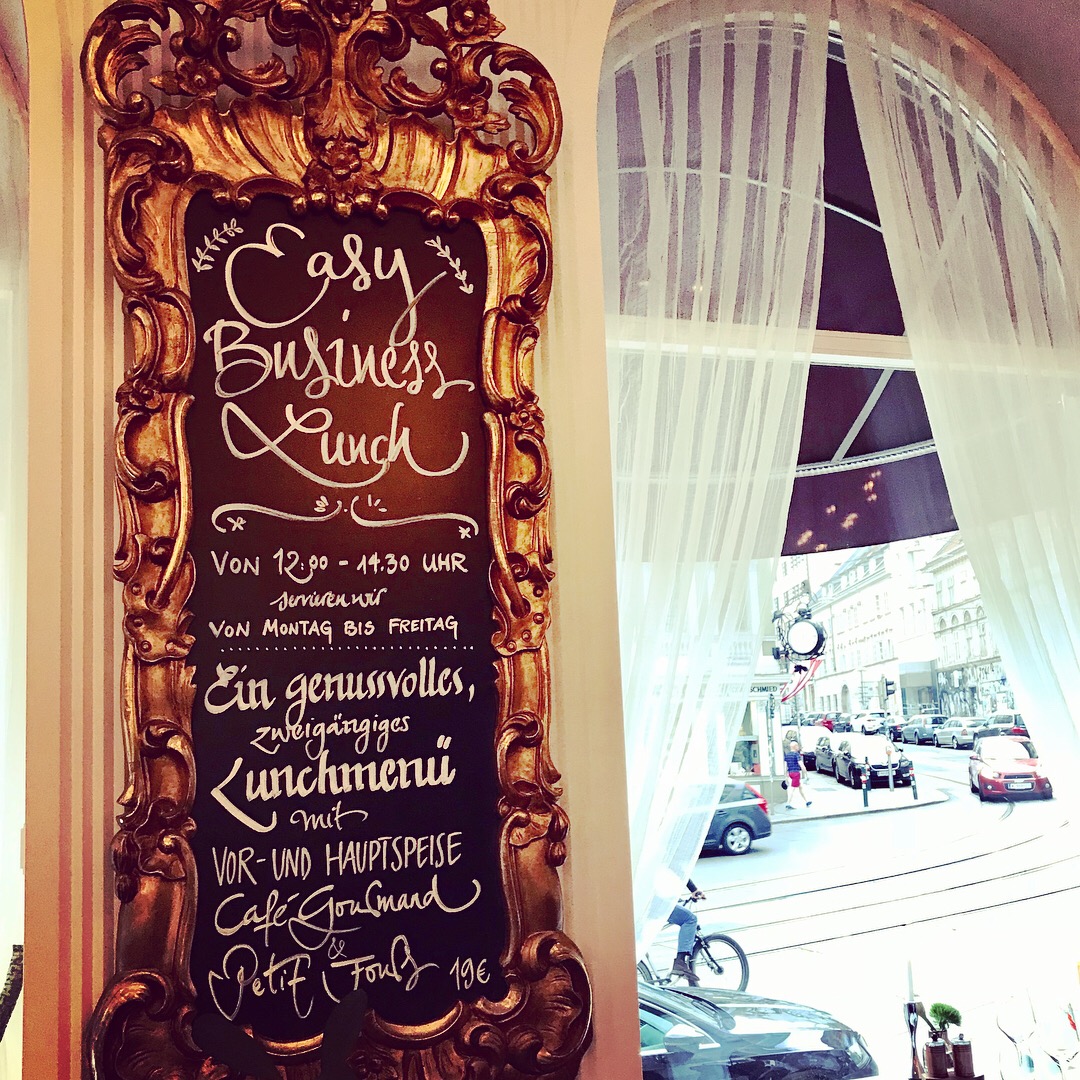 Easy
Business
Lunch
VON 12:00 - 14.30 UHR
servieren wir
VON MONTAG BIS FREITAG
Ein genussvolles,
zweigängiges
Lunchmenü
mit
VOR- UND HAUPTSPEISE
Café Gourmand
&
Petit Fours 19€
SCHMIED